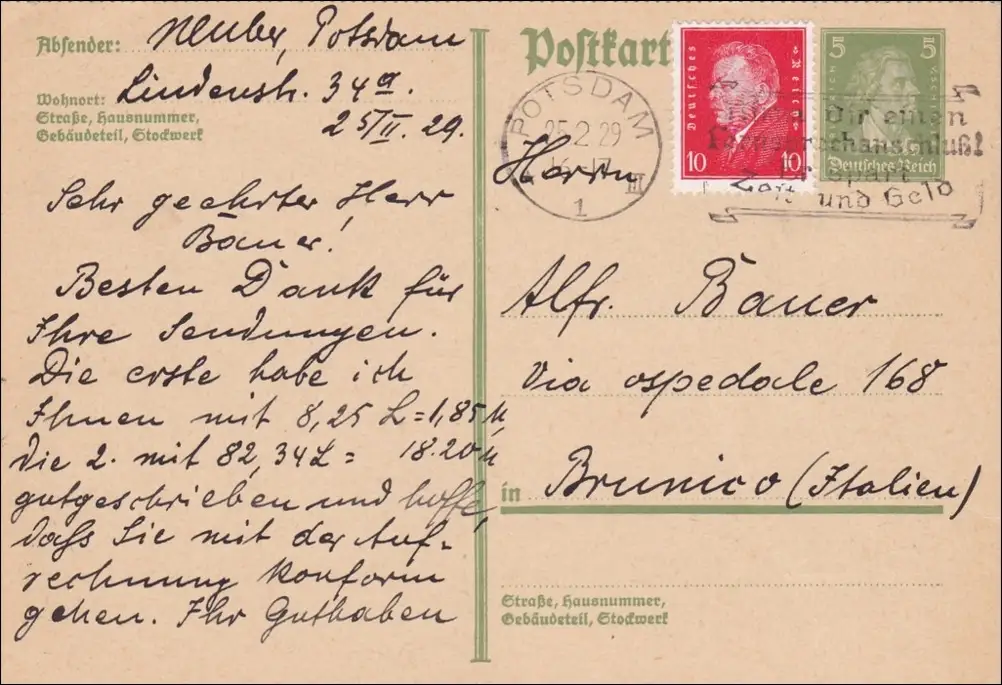 Absender: Neuber, Potsdam
Wohnort: Lindenstr. 34a.
Straße, Hausnummer,
Gebäudeteil, Stockwerk
25/II. 29.
Sehr geehrter Herr
Bauer!
Besten Dank für
Ihre Sendungen.
Die erste habe ich
Ihnen mit 8,25 L = 1,85 M,
die 2. mit 82,34 L = 18.20 M
gutgeschrieben und hoffe,
daß Sie mit der Auf-
rechnung konform
gehen. Ihr Guthaben
Postkart
Deutsches Reich
10 10
5 5
Deutsches Reich
POTSDAM
25.2.29
16-17
III
1
Dir einen
Fernsprechanschluß!
Zeit und Geld
Herrn
Alfr. Bauer
Via ospedale 168
in Brunico (Italien)
Straße, Hausnummer,
Gebäudeteil, Stockwerk